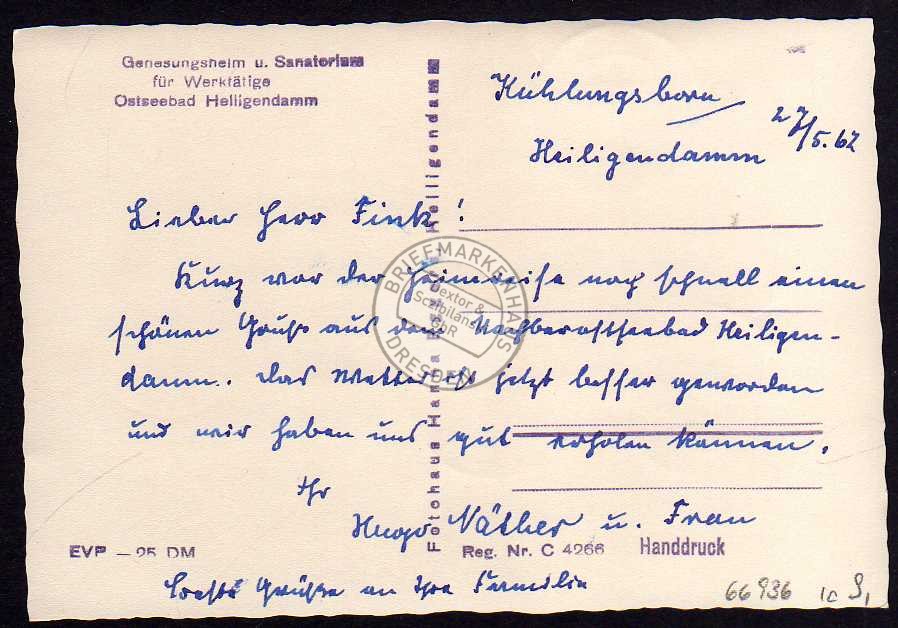 Genesungsheim u. Sanatorium
für Werktätige
Ostseebad Heiligendamm
Kühlungsborn
Heiligendamm
27/5.62
Lieber Herr Fink!
Kurz vor der Heimreise noch schnell einen
schönen Gruß aus dem Nachberostseebad Heiligen-
damm. Das Wetter ist jetzt besser geworden
und wir haben uns gut erholen können.
Ihr
Hugo Näther u. Frau
Beste Grüße an Ihre Familie
EVP – 25 DM
Fotohaus Hansa Heiligendamm
Reg. Nr. C 4266 Handdruck
66936 1c
BRIEFMARKENHAUS
Dextor &
Scibilanski
GbR
DRESDEN